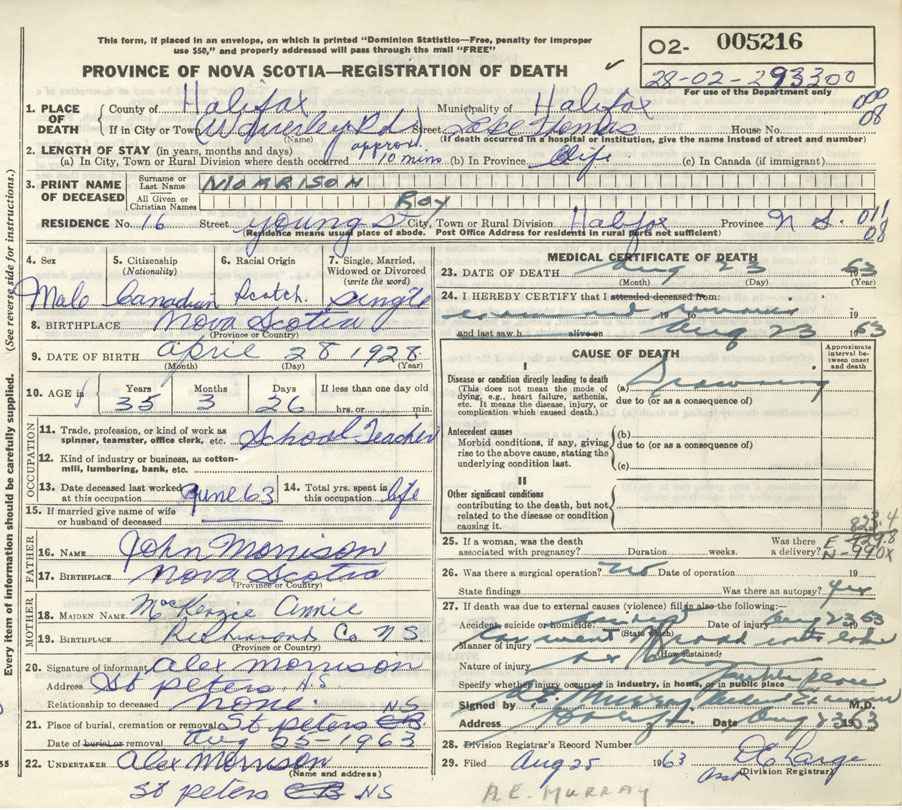 This form, if placed in an envelope, on which is printed "Dominion Statistics—Free, penalty for improper
use $50," and properly addressed will pass through the mail "FREE"
PROVINCE OF NOVA SCOTIA—REGISTRATION OF DEATH
02- 005216
28-02-293300
For use of the Department only
000
08
1. PLACE OF DEATH County of Halifax Municipality of Halifax
If in City or Town Waverley Rd. Street Lake Thomas House No.
(Name) (If death occurred in a hospital or institution, give the name instead of street and number)
2. LENGTH OF STAY (in years, months and days)
(a) In City, Town or Rural Division where death occurred approx. 10 mins (b) In Province life (c) In Canada (if immigrant)
3. PRINT NAME OF DECEASED Surname or Last Name MORRISON
All Given or Christian Names Roy
RESIDENCE No. 16 Street Young St City, Town or Rural Division Halifax Province N S. 011
08
(Residence means usual place of abode. Post Office Address for residents in rural parts not sufficient)
4. Sex 5. Citizenship (Nationality) 6. Racial Origin 7. Single, Married, Widowed or Divorced (write the word)
Male Canadian Scotch. Single
8. BIRTHPLACE Nova Scotia
(Province or Country)
9. DATE OF BIRTH April 28 1928
(Month) (Day) (Year)
10. AGE in Years Months Days If less than one day old
35 3 26 hrs. or min.
OCCUPATION
11. Trade, profession, or kind of work as spinner, teamster, office clerk, etc. School Teacher
12. Kind of industry or business, as cotton-mill, lumbering, bank, etc.
13. Date deceased last worked at this occupation June 63 14. Total yrs. spent in this occupation life
15. If married give name of wife or husband of deceased
FATHER
16. NAME John Morrison
17. BIRTHPLACE Nova Scotia
(Province or Country)
MOTHER
18. MAIDEN NAME MacKenzie Annie
19. BIRTHPLACE Richmond Co N S.
(Province or Country)
20. Signature of informant Alex Morrison
Address St Peters, N.S
Relationship to deceased None
21. Place of burial, cremation or removal St Peters CB NS
Date of burial or removal Aug 25-1963
22. UNDERTAKER Alex Morrison
(Name and address)
St Peters CB NS
MEDICAL CERTIFICATE OF DEATH
23. DATE OF DEATH Aug 23 1963
(Month) (Day) (Year)
24. I HEREBY CERTIFY that I attended deceased from:
examined remains 19 19
and last saw h alive on Aug 23 1963
CAUSE OF DEATH
Approximate interval between onset and death
I
Disease or condition directly leading to death (a) Drowning
(This does not mean the mode of dying, e.g., heart failure, asthenia, etc. It means the disease, injury, or complication which caused death.)
due to (or as a consequence of)
Antecedent causes (b)
Morbid conditions, if any, giving rise to the above cause, stating the underlying condition last.
due to (or as a consequence of)
(c)
II
Other significant conditions
contributing to the death, but not related to the disease or condition causing it.
823.4
25. If a woman, was the death associated with pregnancy? Duration weeks. Was there a delivery?
E-929.8
N-990X
26. Was there a surgical operation? No Date of operation 19
State findings Was there an autopsy? Yes
27. If death was due to external causes (violence) fill in also the following:
Accident, suicide or homicide? Date of injury Aug 23 1963
(State which)
Manner of injury Car went
(How sustained)
Nature of injury
Specify whether injury occurred in industry, in home, or in public place Public place
Signed by Murray Examiner M.D.
Address Date Aug 23 1963
28. Division Registrar's Record Number
29. Filed Aug 25 1963 D E Large
Asst (Division Registrar)
A.E. MURRAY
Every item of information should be carefully supplied. (See reverse side for instructions.)
55